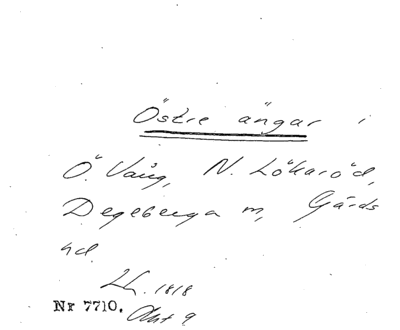 Östre ängar i
Ö. Vång, N. Lökaröd,
Degeberga sn, Gärds
hd.
Lh. 1818
Nr 7710. Akt 9